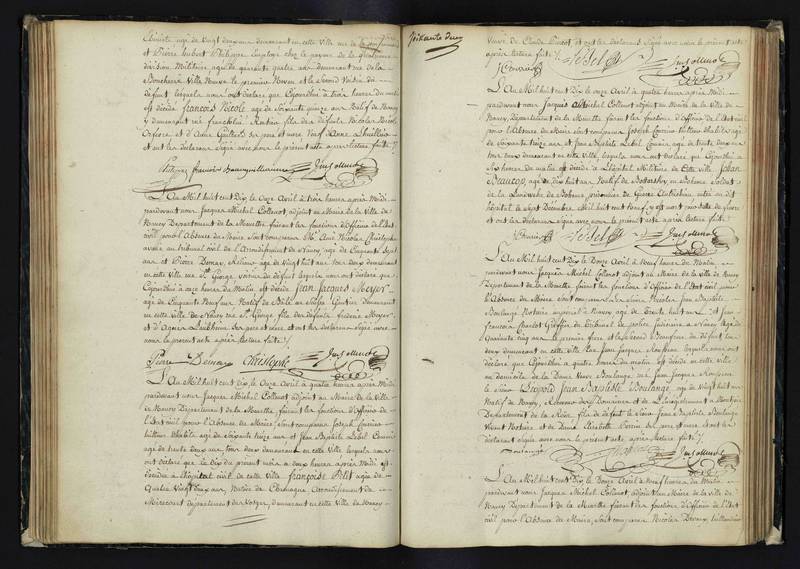 Cliniste agé de vingt deux ans demeurant en cette Ville rue de
et Pierre hubert Philippe Employé chez le payeur de la quatrieme
division Militaire agé de quarante quatre ans demeurant rue de la
Boucherie Ville Neuve le premier Neveu et le Second Voisin du
défunt lesquels nous ont déclaré que Cejourdhui à trois heures du matin
est décédé françois Nicole agé de Soixante quinze ans Natif de Nancy
y demeurant rué fils des défunts Nicolas Nicole
Orfevre et d'Anne ses pere et mere Veuf d'Anne Lhuillier
et ont les déclarans Signé avec nous le présent acte après lecture faite ./.
Philippe
L'An Mil huit cent Dix, le Onze Avril à trois heures après Midi
pardevant nous Jacques Michel Collenot, adjoint au Maire de la Ville de
Nancy Departement de la Meurthe faisant les fonctions d'Officier de l'Etat
civil pour l'Absence du Maire Sont comparus Mr. Aimé Nicolas Christophe
avoué au tribunal civil de l'arrondissement de Nancy agé de Cinquante Sept
ans et Pierre Demay, Relieur agé de vingt huit ans tous deux demeurant
en cette ville rue St. George Voisins du défunt lesquels nous ont déclaré que
Cejourdhui à onze heures du Matin est décédé Jean Jacques Meyer
agé de Cinquante Neuf ans Natif de Bâle en Suisse Gantier demeurant
en cette ville de Nancy rue St. George fils des défunts frederic Meyer
et d'Agnès ses pere et mere et ont les déclarans Signé avec
nous le présent acte après lecture faite ./.
Pierre Demay Christophe
L'An Mil huit cent Dix, le Onze Avril à quatre heures après Midi
pardevant nous Jacques Michel Collenot adjoint au Maire de la ville de
Nancy Departement de la Meurthe, faisant les fonctions d'Officier de
l'Etat civil pour l'Absence du Maire, sont comparus Joseph Courrier
tailleur d'habits agé de Soixante treize ans et Jean Baptiste Lebel Commis
agé de trente deux ans tous deux demeurant en cette Ville lesquels nous
ont déclaré que le Dix du présent mois à deux heures après Midi est
décédée à l'hôpital civil de cette Ville françoise Petit agée de
Quatre Vingt trois ans, Native de Arrondissement de
Mirecourt Departement des Vosges, demeurant en cette Ville de Nancy
Soixante deux
Veuve de Claude et ont les déclarans Signé avec nous le présent acte
après lecture faite ./.
Courrier LeBel
L'An Mil huit cent Dix le Onze Avril à quatre heures après Midi
pardevant nous Jacques Michel Collenot adjoint au Maire de la Ville de
Nancy, Département de la Meurthe faisant les fonctions d'Officier de l'Etat civil
pour l'Absence du Maire sont comparus Joseph Courrier tailleur d'habits agé
de Soixante treize ans et Jean Baptiste Lebel Commis agé de trente deux ans
tous deux demeurant en cette Ville, lesquels nous ont déclaré que Cejourdhui à
Six heures du matin est décédé à l'hôpital Militaire de Cette Ville Johan
agé de Dix huit ans Natif de en Boheme Soldat
de la Landwerhe de Boheme, prisonnier de Guerre Autrichien entré au dit
hôpital le Sept Décembre Mil huit cent Neuf, y est mort par suite de fievre
et ont les déclarans Signé avec nous le présent acte après lecture faite ./.
Courrier LeBel
L'An Mil huit cent Dix le Douze Avril à Neuf heures du Matin
pardevant nous Jacques Michel Collenot adjoint au Maire de la ville de Nancy
Departement de la Meurthe faisant les fonctions d'Officier de l'Etat civil pour
l'Absence du Maire sont comparus Les Sieurs Nicolas Jean Baptiste
Boulange Notaire impérial à Nancy agé de trente huit ans et Jean
francois Charlot Greffier du Tribunal de police Judiciaire à Nancy agé de
Quarante Cinq ans le premier frere et le second Beaufrere du défunt tous
deux demeurant en cette Ville rue Jean Jacques Rousseau lesquels nous ont
déclaré que Cejourdhui à quatre heures du matin est décédé en cette Ville
au domicile de la Dame Veuve Boulange, rue Jean Jacques Rousseau
le Sieur Léopold Jean Baptiste Boulange, agé de Vingt huit ans
Natif de Nancy, Receveur des Domaines et de l'enregistrement à
Departement de la fils de défunt le Sieur Jean Baptiste Boulange
Vivant Notaire et de Dame Elisabeth ses pere et mere et ont les
déclarans Signé avec nous le présent acte, après lecture faite ./.
Boulange
L'An Mil huit cent Dix le Douze Avril à Neuf heures du Matin
pardevant nous Jacques Michel Collenot adjoint au Maire de la ville de
Nancy Departement de la Meurthe faisant les fonctions d'Officier de l'Etat
civil pour l'Absence du Maire, Sont comparus Nicolas